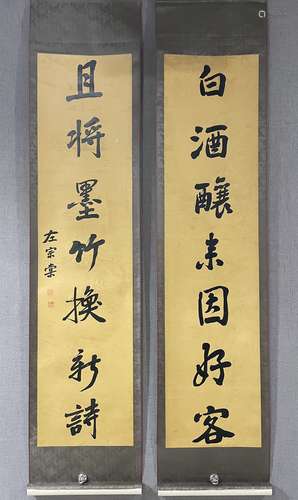 白酒釀来因好客
且将墨竹換新詩
左宗棠